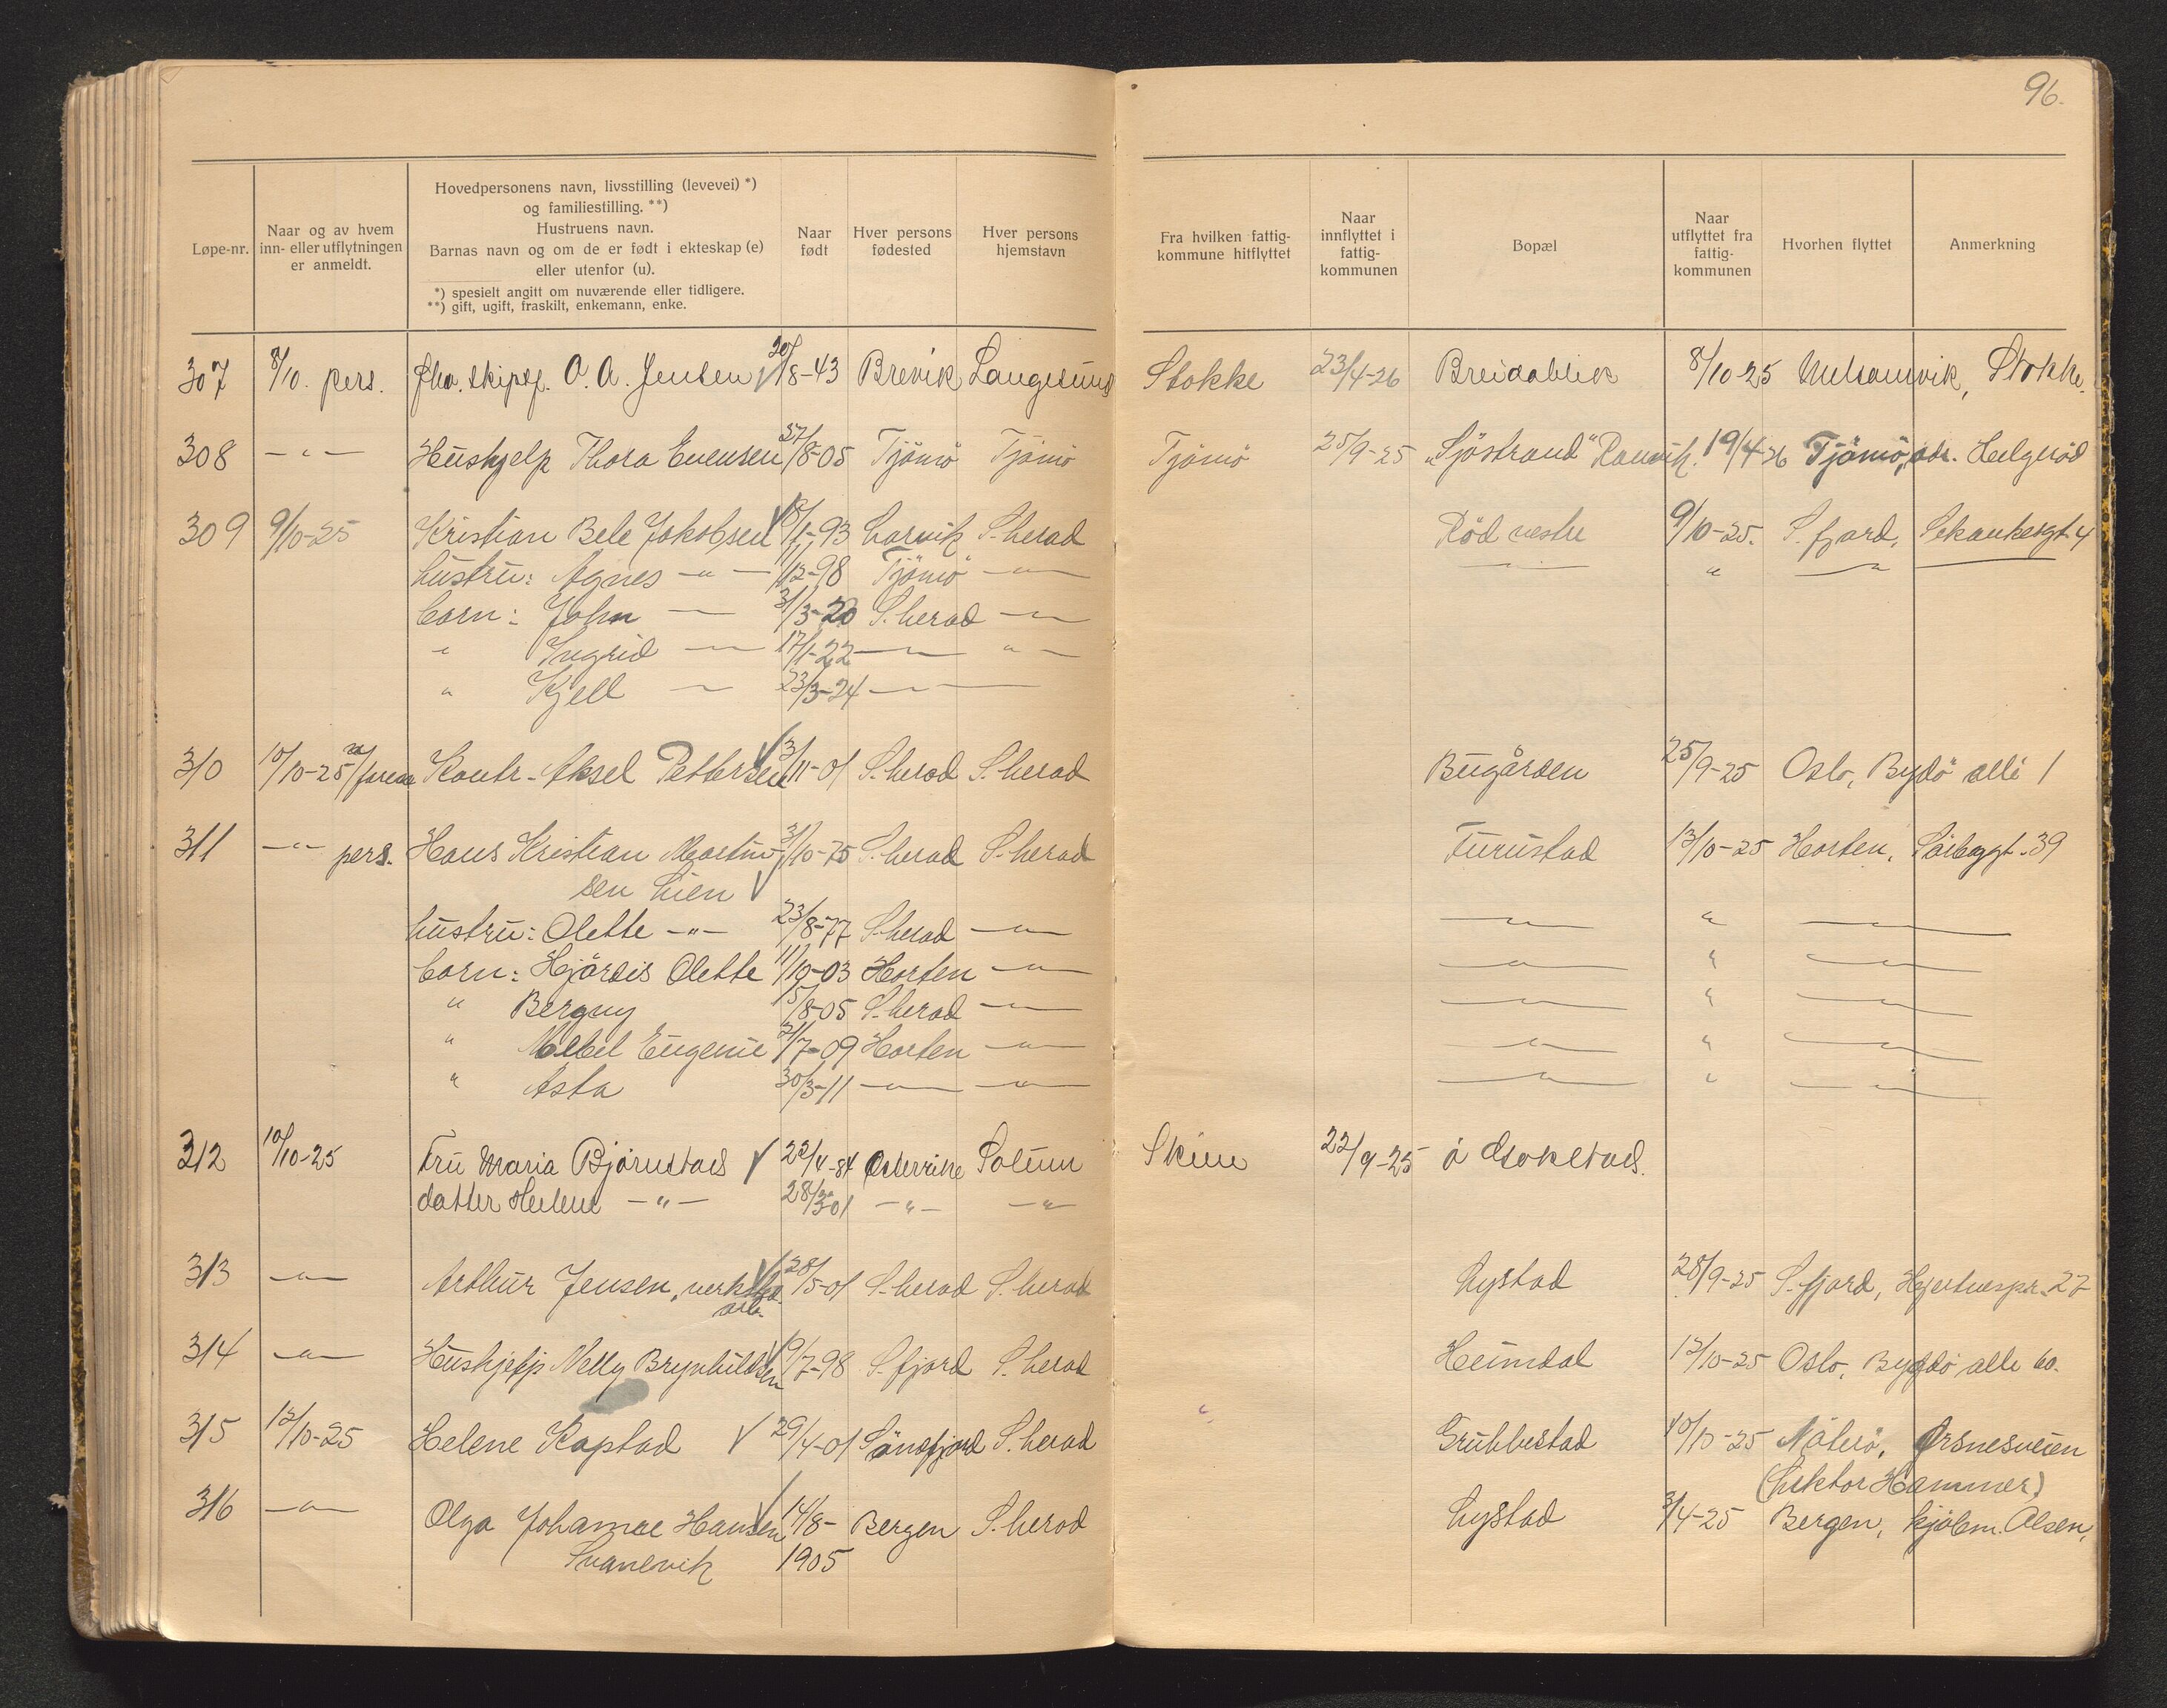 96.
Løpe-nr.
Naar og av hvem inn- eller utflytningen er anmeldt.
Hovedpersonens navn, livsstilling (levevei) *)
og familiestilling. **)
Hustruens navn.
Barnas navn og om de er født i ekteskap (e)
eller utenfor (u).
*) spesielt angitt om nuværende eller tidligere.
**) gift, ugift, fraskilt, enkemann, enke.
Naar født
Hver persons fødested
Hver persons hjemstavn
Fra hvilken fattig-kommune hitflyttet
Naar innflyttet i fattig-kommunen
Bopæl
Naar utflyttet fra fattig-kommunen
Hvorhen flyttet
Anmerkning
307 8/10. pers. fhv. skipsf. O. A. Jensen 20/8-43 Brevik Langesund Stokke 23/4-26 Breidablik 8/10-25 Melsomvik, Stokke.
308 -"- Hushjelp Thora Evensen 27/8-05 Tjömö Tjömö Tjömö 25/9-25 "Sjöstrand" Ranvik. 19/4-26 Tjömö, adr. Helgeröd
309 9/10-25 Kristian Bele Jakobsen /1-93 Larvik S.herad Röd vestre 9/10-25. S.fjord,
hustru: Agnes -"- 11/12-98 Tjömö -"- -"- " -"-
barn: John -"- 31/3-20 S.herad -"-
" Ingrid -"- 17/1-22 -"- -"-
" Kjell -"- 23/3-24 -"-
310 10/10-25 Kontr. Aksel Pettersen 3/11-01 S.herad S.herad Bugården 25/9-25 Oslo, Bydö allé 1
311 -"- pers. Hans Kristian Martin- 31/10-75 S.herad S.herad Furustad 13/10-25 Horten, 39
sen Lien
hustru: Olette -"- 23/8-77 S.herad -"- -"- " -"-
barn: Hjördis Olette 11/10-03 Horten -"- -"- " -"-
" Bergny 15/8-05 S.herad -"- -"- " -"-
" Mabel Eugenie 21/7-09 Horten -"- -"- " -"-
" Asta 30/3-11 -"- -"- -"- " -"-
312 10/10-25 Fru Maria Björnstad 22/4-84 Österrike Solum Skien 22/9-25
datter Helene -"- -"- -"-
313 -"- Arthur Jensen, verksted 28/5-01 S.herad S.herad Lystad 28/9-25 S.fjord, 27
arb.
314 -"- Hushjelp Nelly Brynhildsen 9/7-98 S.fjord S.herad Heimdal 12/10-25 Oslo, Bygdö alle 60.
315 12/10-25 Helene Kapstad 29/4-01 S.herad Grubbestad 10/10-25 Nöterö, Örsnesveien
(Lektor Hammer)
316 -"- Olga Johanne Hansen 14/8- Bergen S.herad Lystad 3/4-25 Bergen, kjöbm. Olsen,
Svanevik 1905